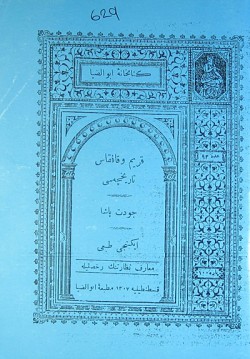 629
كتابخانهٔ ابوالضيا
قريم و قافقاس
تاريخچه‌سى
جودت پاشا
ايكنجى طبعى
معارف نظارتنك رخصتيله
قسطنطينيه ١٣٠٧ مطبعهٔ ابوالضيا